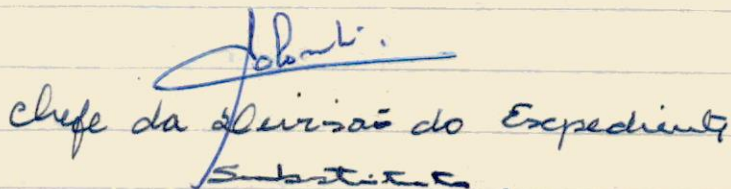 Chefe da Divisão do Expediente
Substituto